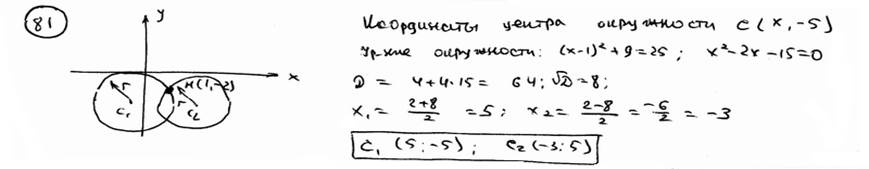 81
y
x
r
C₁
r
C₂
M(1,-2)
Координаты центра окружности C(x,-5)
Ур-ние окружности: (x-1)²+9=25; x²-2x-15=0
D = 4+4·15= 64; √D=8;
x₁= (2+8)/2 =5; x₂= (2-8)/2 = -6/2 = -3
C₁ (5;-5); C₂(-3;5)